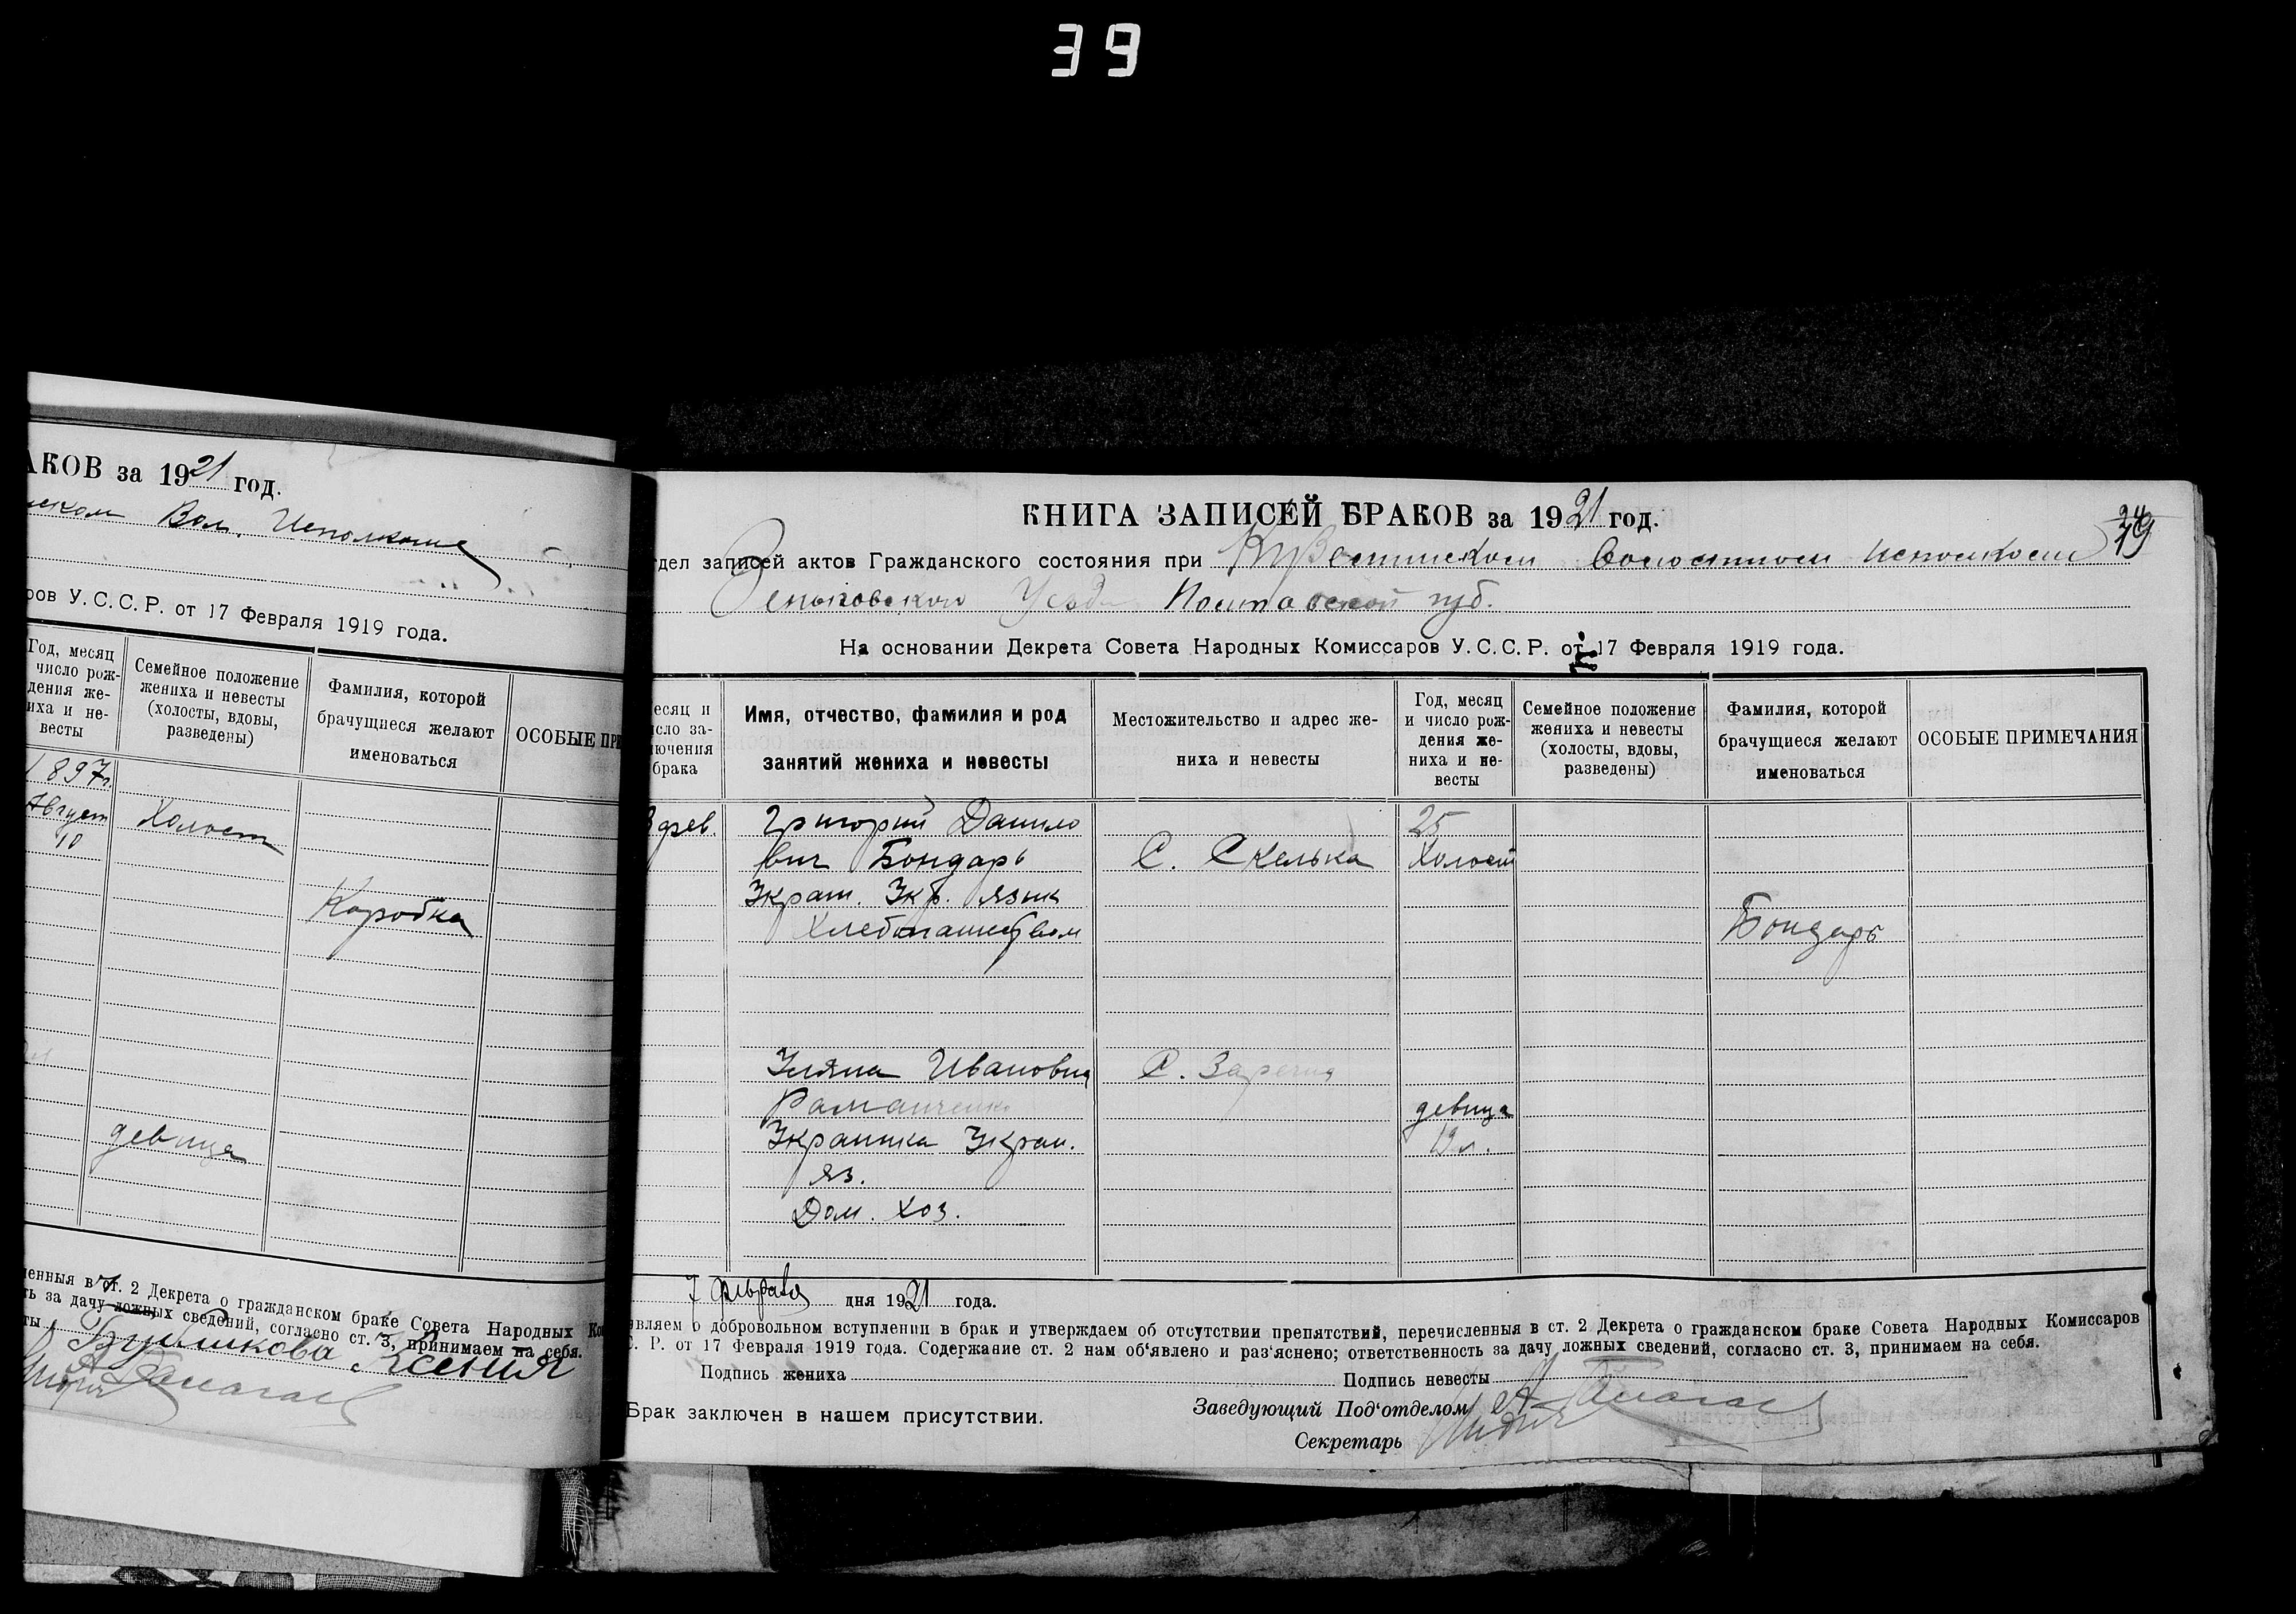 39
АКОВ за 1921 год.
ском Вол. Исполкоме
ров У.С.С.Р. от 17 Февраля 1919 года.
Год, месяц
число рож-
дения же-
ниха и не-
весты
Семейное положение
жениха и невесты
(холосты, вдовы,
разведены)
Фамилия, которой
брачущиеся желают
именоваться
ОСОБЫЕ ПРИ
1897г.
Август
10
Холост
Коробка
девица
ленныя в ст. 2 Декрета о гражданском браке Совета Народных Ко
ть за дачу ложных сведений, согласно ст. 3, принимаем на себя.
ты Бушикова Ксения
КНИГА ЗАПИСЕЙ БРАКОВ за 1921 год.
24
19
тдел записей актов Гражданского состояния при Волостном исполкоме
Зеньковского Уезда Полтавской губ.
На основании Декрета Совета Народных Комиссаров У.С.С.Р. от 17 Февраля 1919 года.
есяц и
исло за-
лючения
брака
Имя, отчество, фамилия и род
занятий жениха и невесты
Местожительство и адрес же-
ниха и невесты
Год, месяц
и число рож-
дения же-
ниха и не-
весты
Семейное положение
жениха и невесты
(холосты, вдовы,
разведены)
Фамилия, которой
брачущиеся желают
именоваться
ОСОБЫЕ ПРИМЕЧАНИЯ
3 фев.
Григорий Данило
вич Бондарь
Украин. Укр. язык
Хлебопашеством
С. Скелька
25
Холост
Бондарь
Уляна Ивановна
Романченко
Украинка Украин.
яз.
Дом. хоз.
С. Заречья
девица
19 л.
7 февраля дня 1921 года.
являем о добровольном вступлении в брак и утверждаем об отсутствии препятствий, перечисленныя в ст. 2 Декрета о гражданском браке Совета Народных Комиссаров
С. Р. от 17 Февраля 1919 года. Содержание ст. 2 нам об'явлено и раз'яснено; ответственность за дачу ложных сведений, согласно ст. 3, принимаем на себя.
Подпись жениха Подпись невесты
Брак заключен в нашем присутствии.
Заведующий Под'отделом
Секретарь